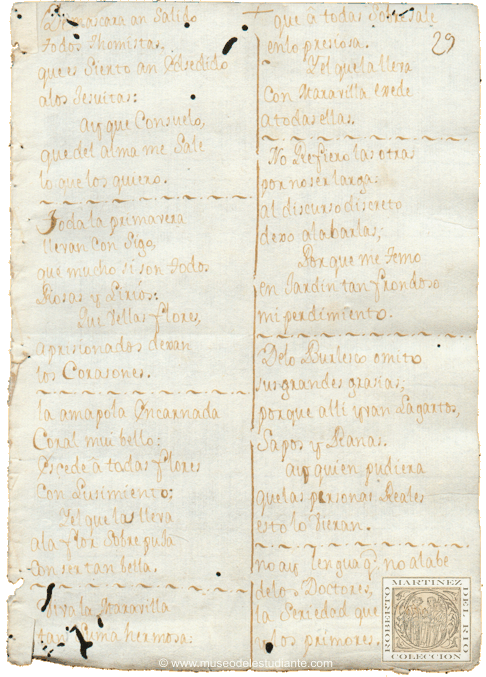 De mascara an Salido
todos Thomistas.
que es Sierto an Exsedido
a los Jesuitas:
ay que Consuelo,
que del alma me Sale
lo que los quiero.
Toda la primavera
llevan Con Sigo,
que mucho si son todos
Rosas y Lirios:
Que Vellas flores,
aprisionados dexan
los Corazones.
la amapola Encarnada
Coral mui bello:
Escede â todas flores
Con Lusimiento:
Y el que las lleva
a la flor Sobrepuja
Con ser tan bella.
Viva la Maravilla
tan Suma hermosa:
que â todas Sobresale
29
en lo presiosa.
Y el que la lleva
Con Maravilla exede
a todas ellas.
No Refiero las otras
por no ser larga:
al discurso discreto
dexo alabarlas;
Porque me temo
en Jardin tan frondoso
mi perdimiento.
De lo Burlesco omito
sus grandes grasias;
porque alli yvan Lagartos,
Sapos y Ranas.
ay quien pudiera
que las personas Reales
esto lo Vieran.
no ay lengua q. no alabe
de los Doctores,
la Seriedad que
los primores.
ROBERTO MARTINEZ DEL RIO
COLECCION
© www.museodelestudiante.com